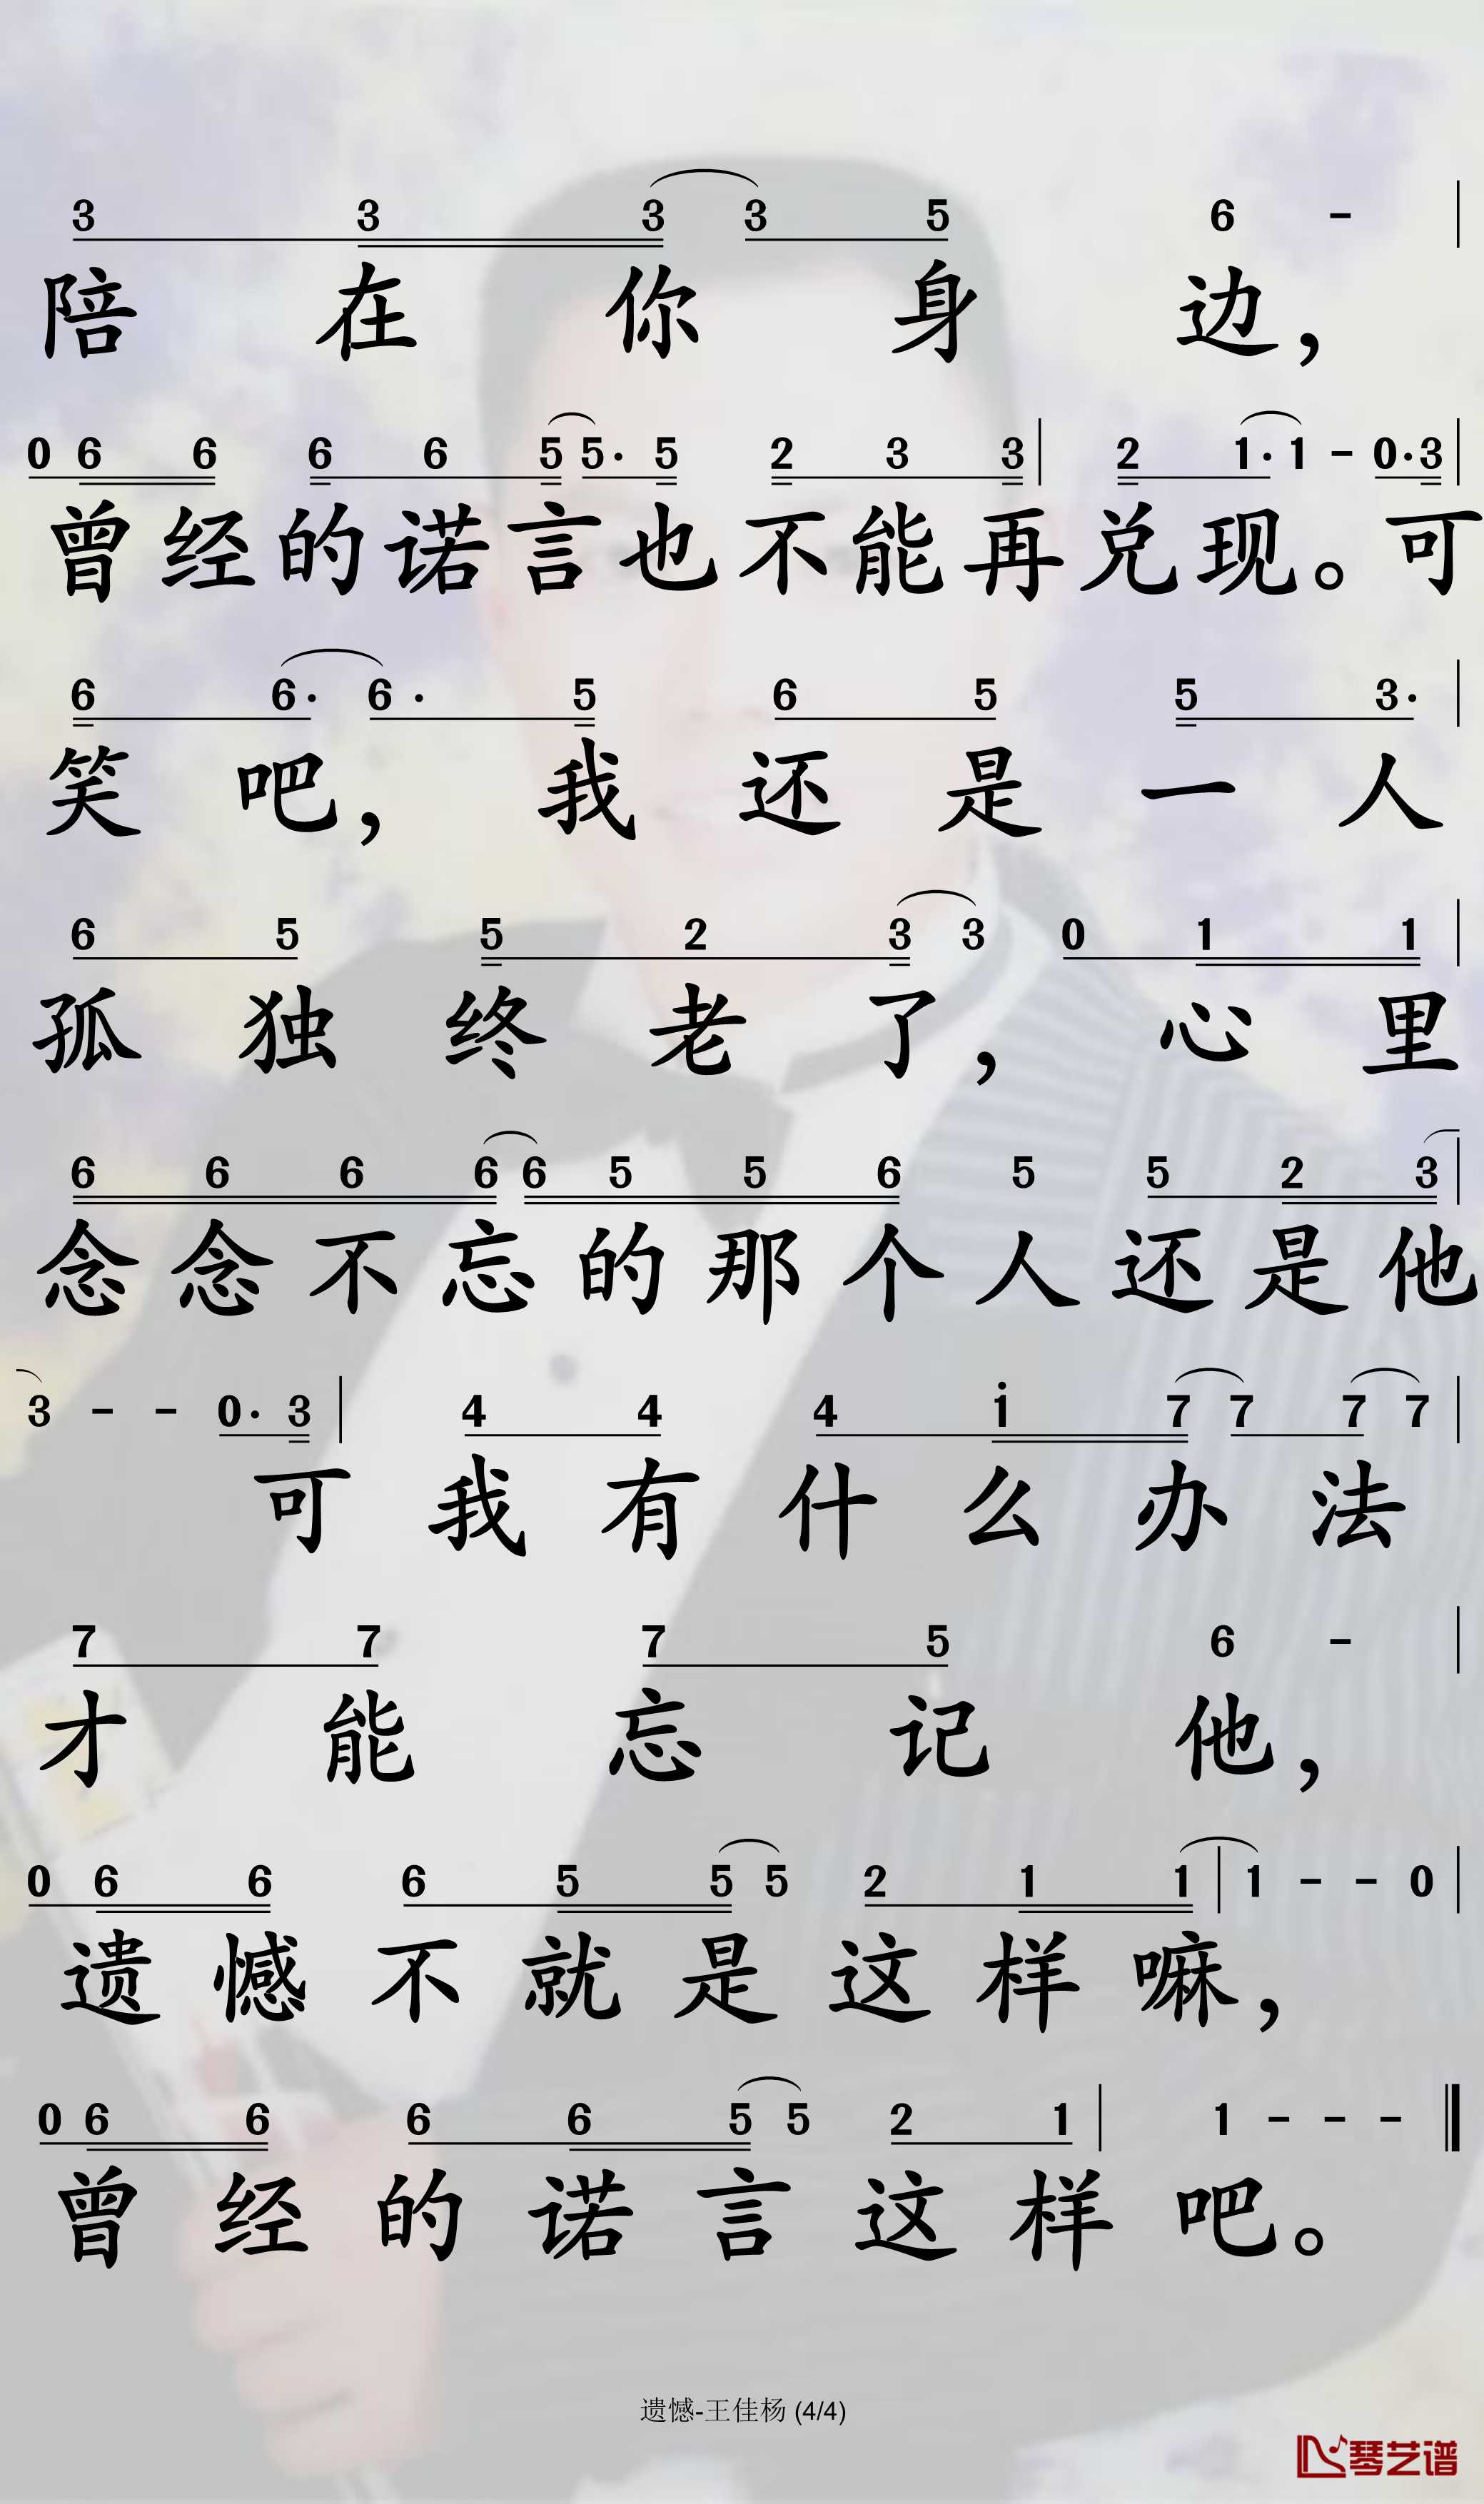 3 3 3 3 5 6 - |
陪在你身边，
0 6 6 6 6 5 5· 5 2 3 3 | 2 1· 1 - 0· 3 |
曾经的诺言也不能再兑现。可
6 6· 6· 5 6 5 5 3· |
笑吧，我还是一人
6 5 5 2 3 3 0 1 1 |
孤独终老了，心里
6 6 6 6 6 5 5 6 5 5 2 3 |
念念不忘的那个人还是他
3 - - 0· 3 | 4 4 4 i 7 7 7 7 |
可我有什么办法
7 7 7 5 6 - |
才能忘记他，
0 6 6 6 5 5 5 2 1 1 | 1 - - 0 |
遗憾不就是这样嘛，
0 6 6 6 6 5 5 2 1 | 1 - - - ‖
曾经的诺言这样吧。
遗憾-王佳杨 (4/4)
琴艺谱